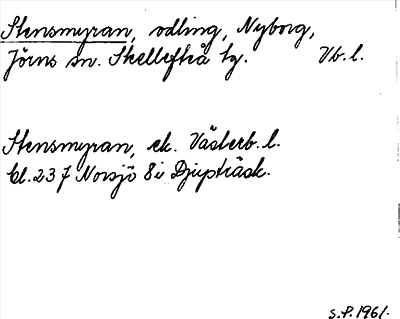 Stensmyran, odling, Nyborg,
Jörns sn. Skellefteå tg. Vb. l.
Stensmyran, ek. Västerb. l.
bl. 23 J Norsjö 8 i Djupträsk.
S.P. 1961.